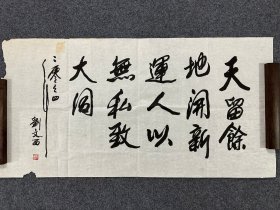 天留餘
地開新
運人以
無私致
大同
二零零四
劉文西